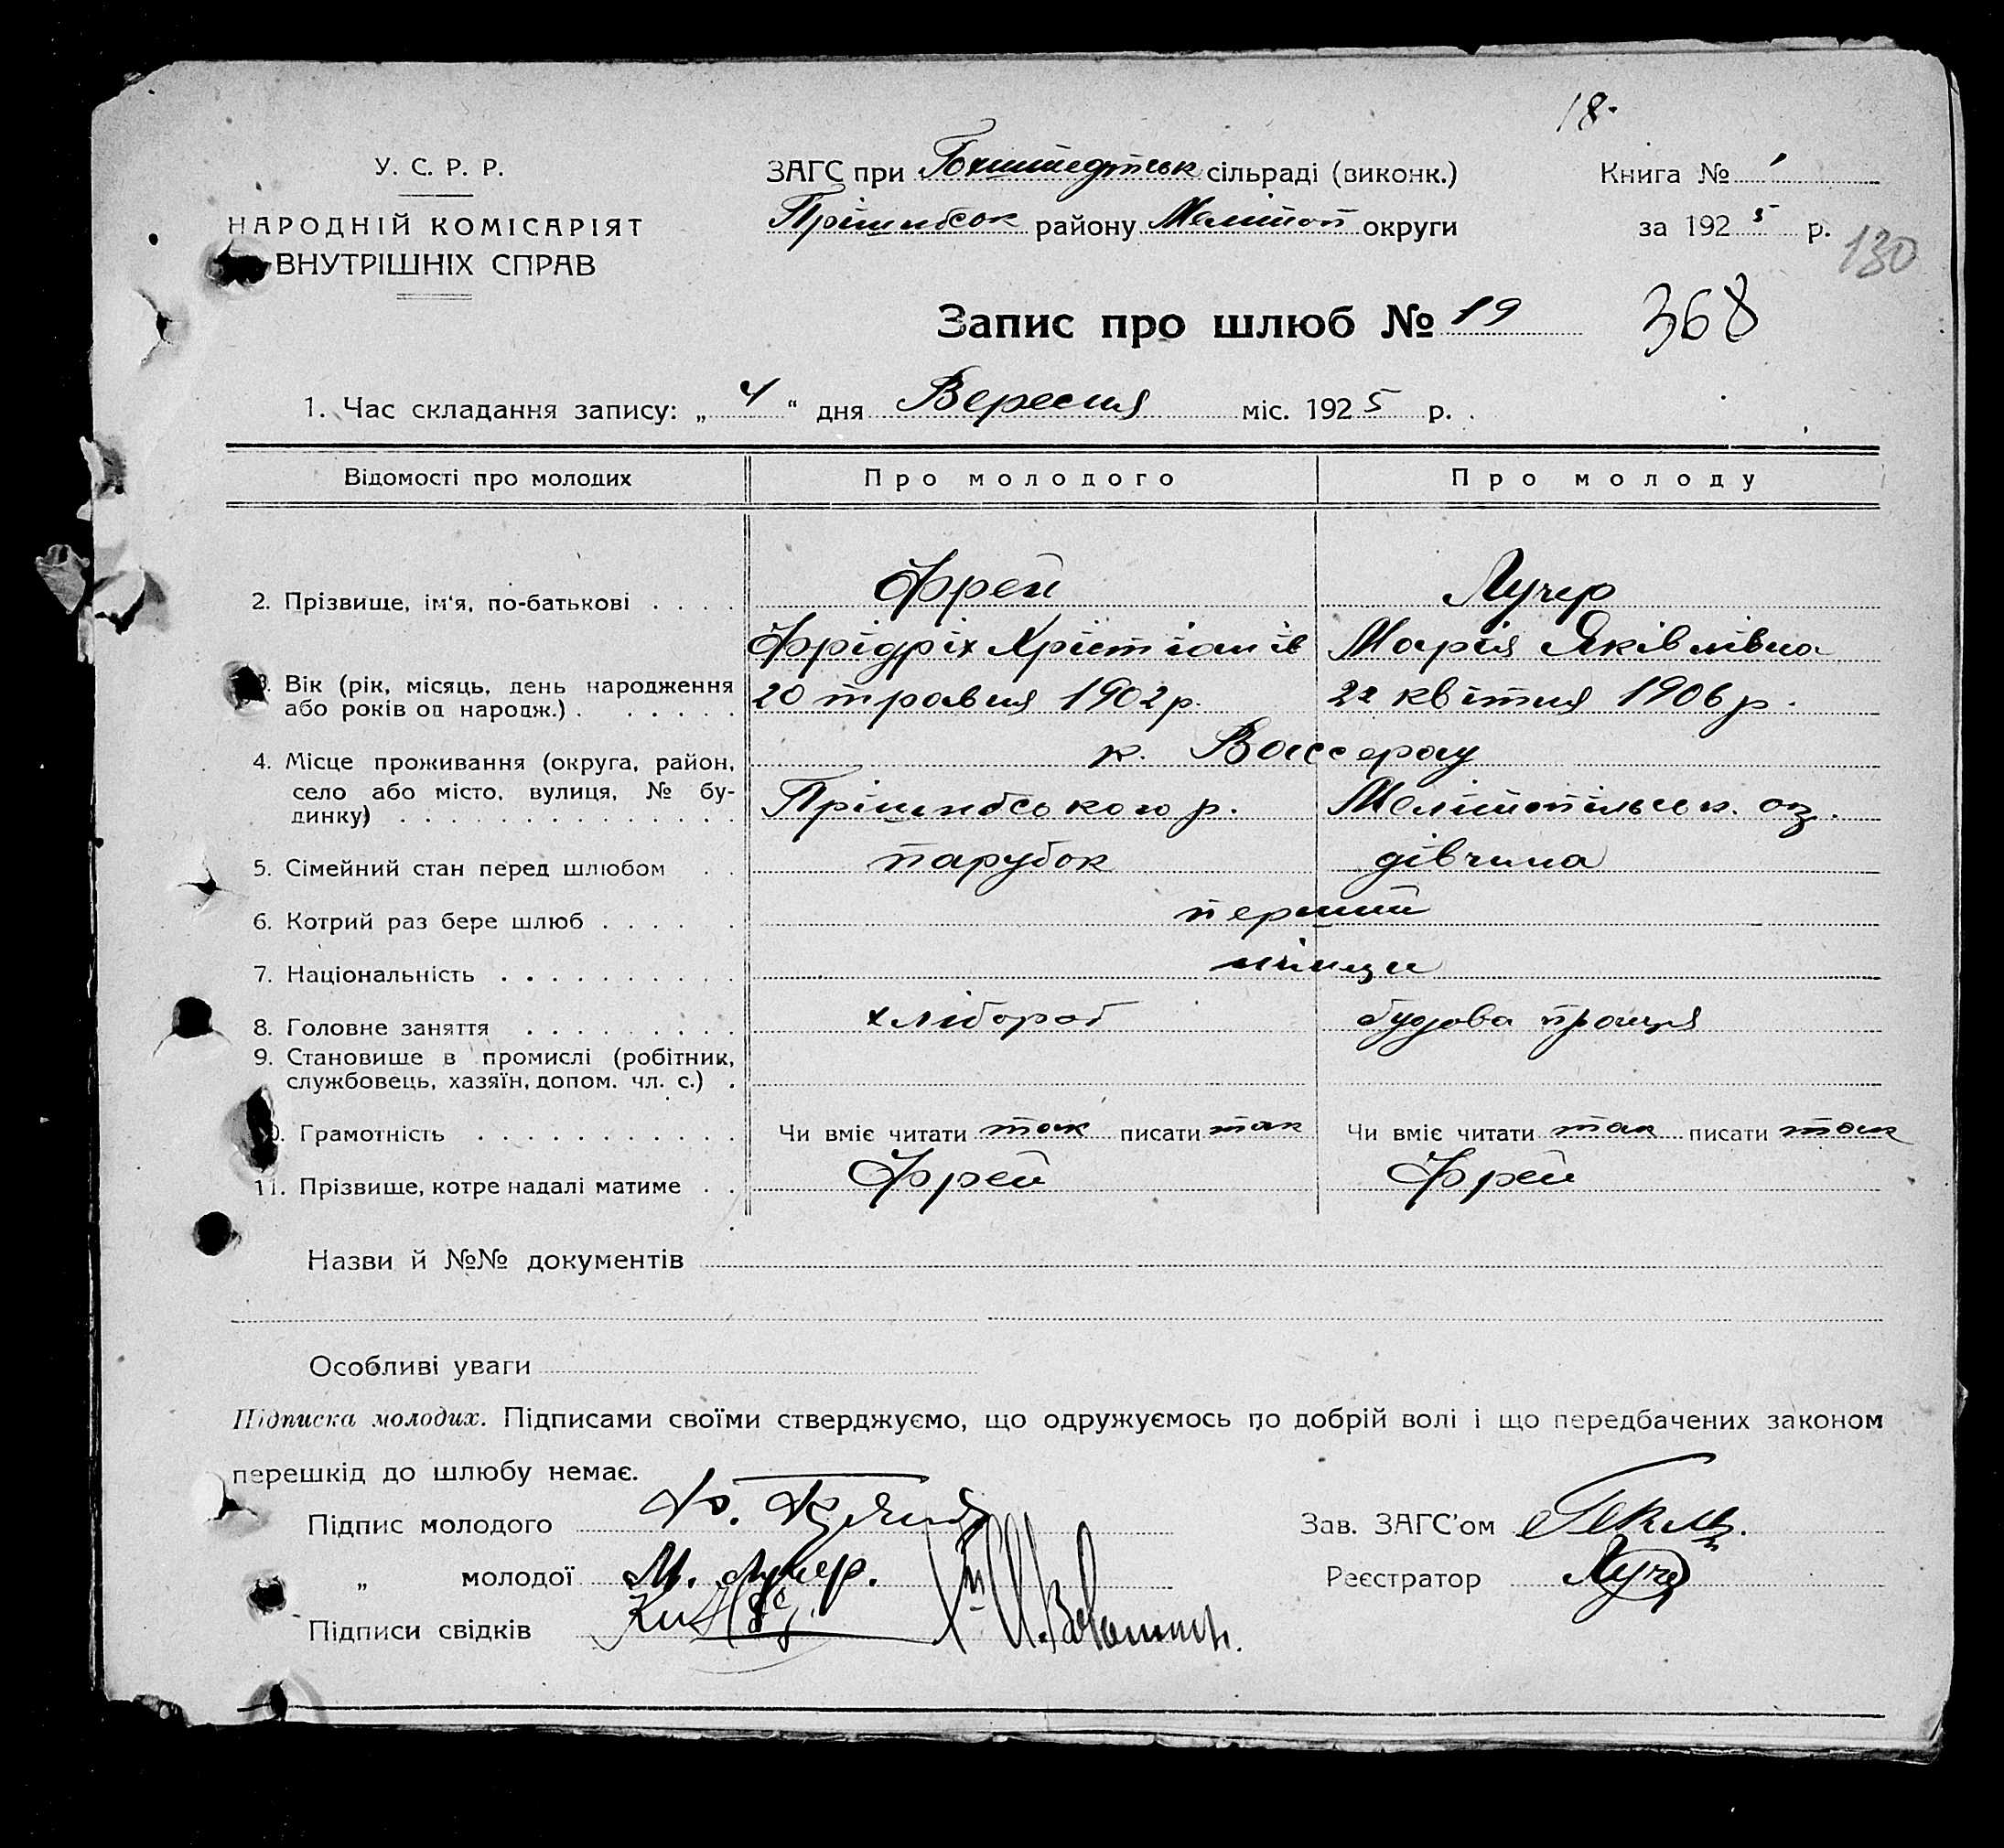 18.
У. С. Р. Р.
НАРОДНІЙ КОМІСАРІЯТ
ВНУТРІШНІХ СПРАВ
ЗАГС при Гохштедтськ сільраді (виконк.)
Прішибсок району Мелітоп округи
Книга № 1
за 1925 р.
130
Запис про шлюб № 19
368
1. Час складання запису: „ 4 “ дня Вересня міс. 1925 р.
Відомості про молодих Про молодого Про молоду
2. Прізвище, ім'я, по-батькові Фрей Лучер
Фрідріх Хрістіанів Марія Яківлівна
3. Вік (рік, місяць, день народження або років од народж.) 20 травня 1902 р. 22 квітня 1906 р.
4. Місце проживання (округа, район, село або місто, вулиця, № будинку) к. Вассерау
Прішибського р. Мелітопільськ. ок.
5. Сімейний стан перед шлюбом парубок дівчина
6. Котрий раз бере шлюб перший
7. Національність німци
8. Головне заняття хлібороб будова праця
9. Становище в промислі (робітник, службовець, хазяїн, допом. чл. с.)
10. Грамотність Чи вміє читати так писати так Чи вміє читати так писати так
11. Прізвище, котре надалі матиме Фрей Фрей
Назви й №№ документів
Особливі уваги
Підписка молодих. Підписами своїми стверджуємо, що одружуємось по добрій волі і що передбачених законом
перешкід до шлюбу немає.
Підпис молодого
Зав. ЗАГС'ом
„ молодої М. Лучер.
Реєстратор Лучер
Підписи свідків